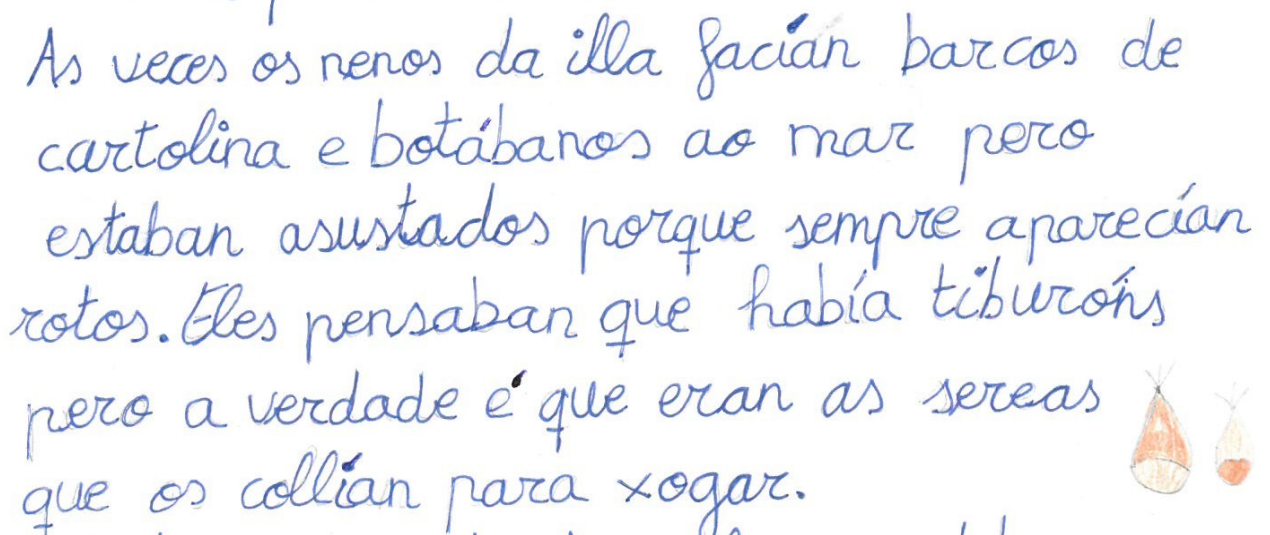 As veces os nenos da illa facían barcos de
cartolina e botábanos ao mar pero
estaban asustados porque sempre aparecían
rotos. Eles pensaban que había tiburóns
pero a verdade é que eran as sereas
que os collían para xogar.